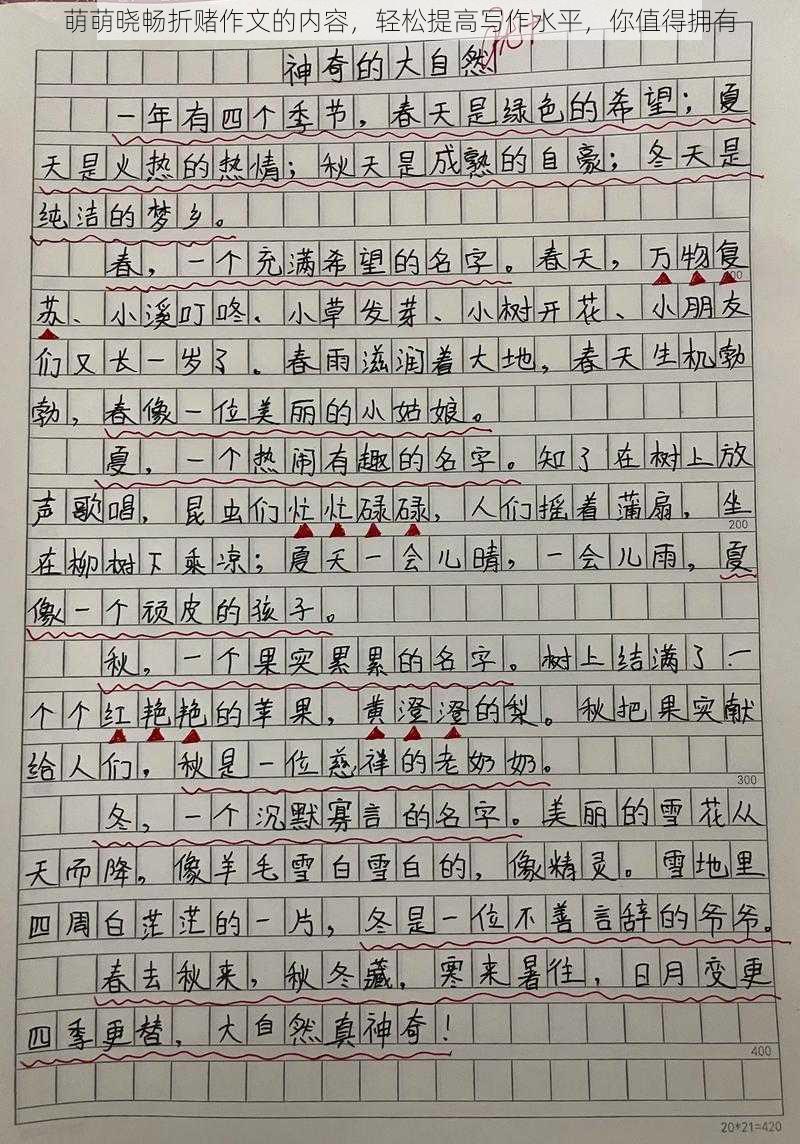 萌萌晓畅折赌作文的内容，轻松提高写作水平，你值得拥有
神奇的大自然
一年有四个季节，春天是绿色的希望；夏
天是火热的热情；秋天是成熟的自豪；冬天是
纯洁的梦乡。
春，一个充满希望的名字。春天，万物复
100
苏、小溪叮咚、小草发芽、小树开花、小朋友
们又长一岁了。春雨滋润着大地，春天生机勃
勃，春像一位美丽的小姑娘。
夏，一个热闹有趣的名字。知了在树上放
声歌唱，昆虫们忙忙碌碌，人们摇着蒲扇，坐
200
在柳树下乘凉；夏天一会儿晴，一会儿雨，夏
像一个顽皮的孩子。
秋，一个果实累累的名字。树上结满了一
个个红艳艳的苹果，黄澄澄的梨。秋把果实献
给人们，秋是一位慈祥的老奶奶。
300
冬，一个沉默寡言的名字。美丽的雪花从
天而降。像羊毛雪白雪白的，像精灵。雪地里
四周白茫茫的一片，冬是一位不善言辞的爷爷。
春去秋来，秋冬藏，寒来暑往，日月变更
四季更替，大自然真神奇！
400
20*21=420